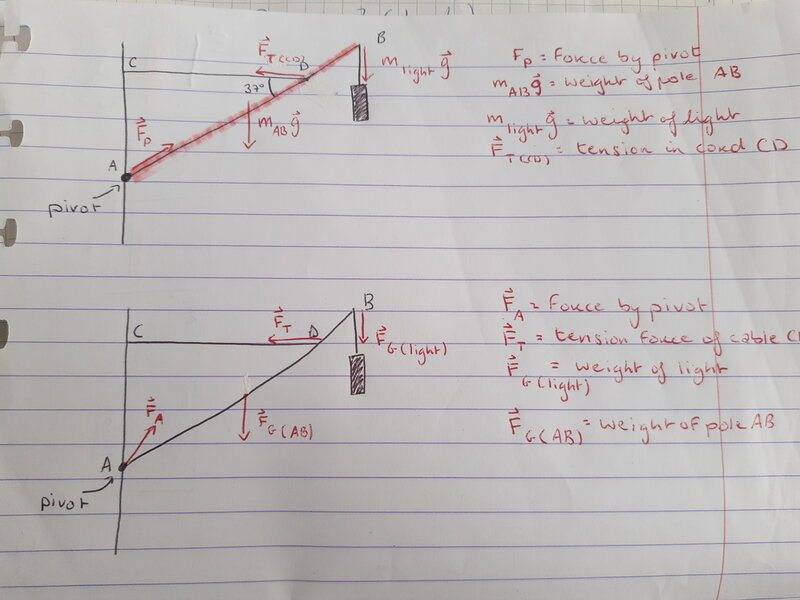 B
C
F⃗T(CD)
D
m light g⃗
37°
mAB g⃗
F⃗p
A
pivot
Fp = Force by pivot
mAB g⃗ = weight of pole AB
m light g⃗ = weight of light
F⃗T(CD) = tension in cord CD
B
C
F⃗T
D
F⃗G(light)
F⃗A
F⃗G(AB)
A
pivot
F⃗A = Force by pivot
F⃗T = tension force of cable C
F⃗G(light) = weight of light
F⃗G(AB) = weight of pole AB